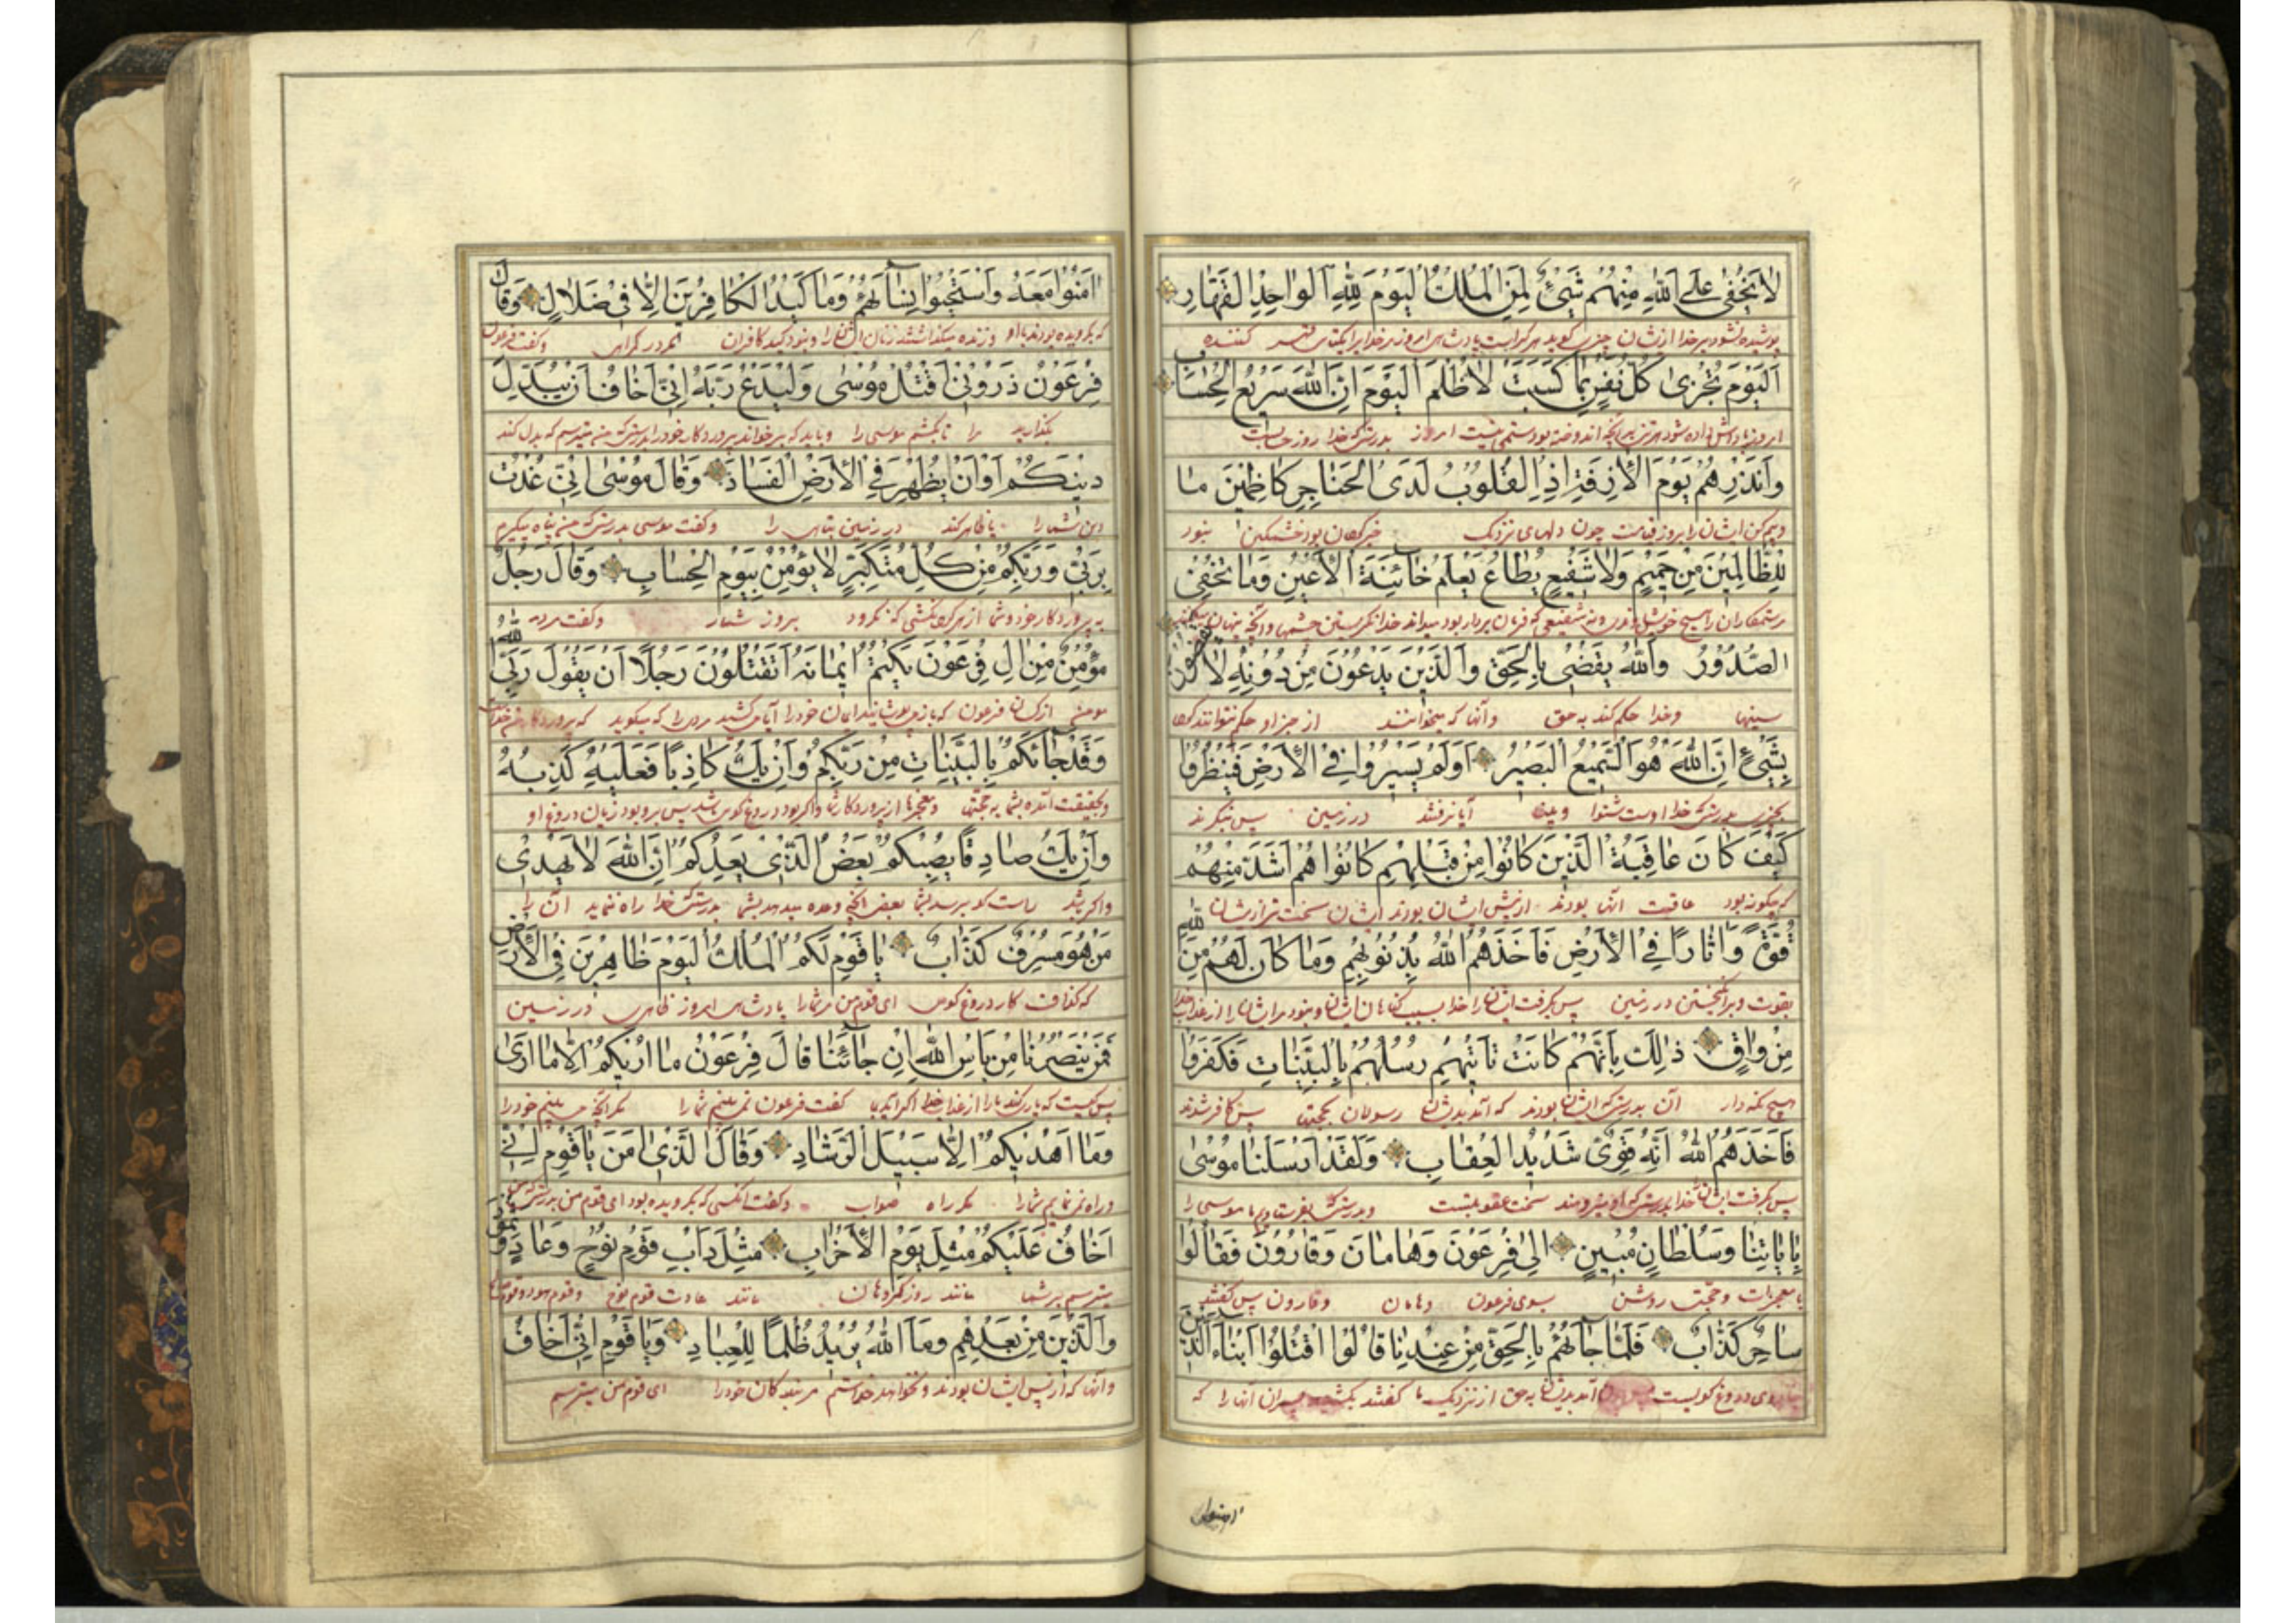 لا يَخْفىٰ عَلَى اللهِ مِنْهُمْ شَيْئٌ لِمَنِ الْمُلْكُ الْيَوْمَ لِلّٰهِ الْواحِدِ الْقَهّارِ
پوشیده نشود بر خدا ازیشان چیزی گوید مر کراست پادشاهی امروز مر خدایرا یکتای قهر کننده
اَلْيَوْمَ تُجْزىٰ كُلُّ نَفْسٍ بِما كَسَبَتْ لا ظُلْمَ الْيَوْمَ اِنَّ اللهَ سَريعُ الْحِسابِ
امروز پاداش داده شود هر تن بدانچه اندوخته بود ستمی نیست امروز بدرستیکه خدا زود حسابست
وَاَنْذِرْهُمْ يَوْمَ الْاٰزِفَةِ اِذِ الْقُلُوبُ لَدَى الْحَناجِرِ كاظِمينَ ما
وبیم کن ایشان را بروز قیامت چون دلهای نزدیک بود خشمگین نبود
لِلظّالِمينَ مِنْ حَميمٍ وَلا شَفيعٍ يُطاعُ يَعْلَمُ خائِنَةَ الْاَعْيُنِ وَما تُخْفِي
ستمکاران را هیچ خویش ونه شفیعی که فرمان بردار بود میداند خدا نگریستن چشمها وآنچه پنهان میکند
الصُّدُورُ وَاللهُ يَقْضي بِالْحَقِّ وَالَّذينَ يَدْعُونَ مِنْ دُونِهِ لا يَقْضُونَ
سینها وخدا حکم کند به حق وآنها که میخوانند از جز او حکم نتوانند کرد
بِشَيْئٍ اِنَّ اللهَ هُوَ السَّميعُ الْبَصيرُ اَوَلَمْ يَسيرُوا فِي الْاَرْضِ فَيَنْظُرُوا
بچیزی بدرستیکه خدا اوست شنوا وبینا آیا نرفتند در زمین پس نگرند
كَيْفَ كانَ عاقِبَةُ الَّذينَ كانُوا مِنْ قَبْلِهِمْ كانُوا هُمْ اَشَدَّ مِنْهُمْ
که چگونه بود عاقبت آنها بودند از پیش ایشان بودند ایشان سخت تر ازیشان
قُوَّةً وَاٰثارًا فِي الْاَرْضِ فَاَخَذَهُمُ اللهُ بِذُنُوبِهِمْ وَما كانَ لَهُمْ مِنَ اللهِ
بقوت وبرانگیختن در زمین پس بگرفت ایشان را خدا بسبب گناهان ایشان ونبود مر ایشان را از عذاب خدا
مِنْ واقٍ ذٰلِكَ بِاَنَّهُمْ كانَتْ تَأْتيهِمْ رُسُلُهُمْ بِالْبَيِّناتِ فَكَفَرُوا
هیچ نگه دار آن بدرستیکه ایشان بودند که آمد بدیشان رسولان بحجتها پس کافر شدند
فَاَخَذَهُمُ اللهُ اِنَّهُ قَوِيٌّ شَديدُ الْعِقابِ وَلَقَدْ اَرْسَلْنا مُوسىٰ
پس بگرفت ایشان خدا بدرستیکه او نیرومند سخت عقوبتست وبدرستیکه بفرستادیم ما موسی را
بِاٰياتِنا وَسُلْطانٍ مُبينٍ اِلىٰ فِرْعَوْنَ وَهامانَ وَقارُونَ فَقالُوا
با معجزات وحجت روشن بسوی فرعون وهامان وقارون پس گفتند
ساحِرٌ كَذّابٌ فَلَمّا جاءَهُمْ بِالْحَقِّ مِنْ عِنْدِنا قالُوا اقْتُلُوا اَبْناءَ الَّذينَ
دروغ گویست آمد بدیشان به حق از نزدیک ما گفتند بکشید پسران آنها را که
اٰمنوا
اٰمَنُوا مَعَهُ وَاسْتَحْيُوا نِساءَهُمْ وَما كَيْدُ الْكافِرينَ اِلّا في ضَلالٍ وَقالَ
که بگرویده بودند با او وزنده بگذاشتند زنان ایشان را ونبود کید کافران مگر در گمراهی وگفت فرعون
فِرْعَوْنُ ذَرُوني اَقْتُلْ مُوسىٰ وَلْيَدْعُ رَبَّهُ اِنّي اَخافُ اَنْ يُبَدِّلَ
بگذارید مرا تا بکشم موسی را وباید که بر خواند پروردگار خود را بدرستیکه من میترسم که بدل کند
دينَكُمْ اَوْ اَنْ يُظْهِرَ فِي الْاَرْضِ الْفَسادَ وَقالَ مُوسىٰ اِنّي عُذْتُ
دین شما را یا ظاهر کند در زمین تباهی را وگفت موسی بدرستیکه من پناه میگیرم
بِرَبّي وَرَبِّكُمْ مِنْ كُلِّ مُتَكَبِّرٍ لا يُؤْمِنُ بِيَوْمِ الْحِسابِ وَقالَ رَجُلٌ
به پروردگار خود وشما از هر گردنکشی که نگرود بروز شمار وگفت مردی
مُؤْمِنٌ مِنْ اٰلِ فِرْعَوْنَ يَكْتُمُ ايمانَهُ اَتَقْتُلُونَ رَجُلًا اَنْ يَقُولَ رَبِّيَ اللهُ
مومن از کسان فرعون که باز میپوشانید ایمان خود را آیا میکشید مردی را که میگوید که پروردگار من خداست
وَقَدْ جاءَكُمْ بِالْبَيِّناتِ مِنْ رَبِّكُمْ وَاِنْ يَكُ كاذِبًا فَعَلَيْهِ كَذِبُهُ
وبحقیقت آمده بشما به حجتها ومعجزها از پروردگار شما واگر بود دروغ گوی باشد پس برو بود زیان دروغ او
وَاِنْ يَكُ صادِقًا يُصِبْكُمْ بَعْضُ الَّذي يَعِدُكُمْ اِنَّ اللهَ لا يَهْدي
واگر باشد راست گو برسد بشما بعض آنچه وعده میدهد بشما بدرستیکه خدا راه ننماید آن را
مَنْ هُوَ مُسْرِفٌ كَذّابٌ يا قَوْمِ لَكُمُ الْمُلْكُ الْيَوْمَ ظاهِرينَ فِي الْاَرْضِ
که گزاف کار دروغ گوی ای قوم من مر شما را پادشاهی امروز ظاهری در زمین
فَمَنْ يَنْصُرُنا مِنْ بَأْسِ اللهِ اِنْ جاءَنا قالَ فِرْعَوْنُ ما اُريكُمْ اِلّا ما اَرىٰ
پس کیست که یاری کند ما را از عذاب خدا اگر آید بما گفت فرعون نمی بینم شما را مگر آنچه می بینم خود را
وَما اَهْديكُمْ اِلّا سَبيلَ الرَّشادِ وَقالَ الَّذي اٰمَنَ يا قَوْمِ اِنّي
وراه نمی نمایم شما را مگر راه صواب وگفت آنکسی که بگرویده بود ای قوم من بدرستیکه من
اَخافُ عَلَيْكُمْ مِثْلَ يَوْمِ الْاَحْزابِ مِثْلَ دَأْبِ قَوْمِ نُوحٍ وَعادٍ وَثَمُودَ
میترسم بر شما مانند روز گروهان مانند عادت قوم نوح وقوم هود
وَالَّذينَ مِنْ بَعْدِهِمْ وَما اللهُ يُريدُ ظُلْمًا لِلْعِبادِ وَيا قَوْمِ اِنّي اَخافُ
وآنها که از پس ایشان بودند ونخواهد خدا ستم مر بندگان خود را ای قوم من میترسم